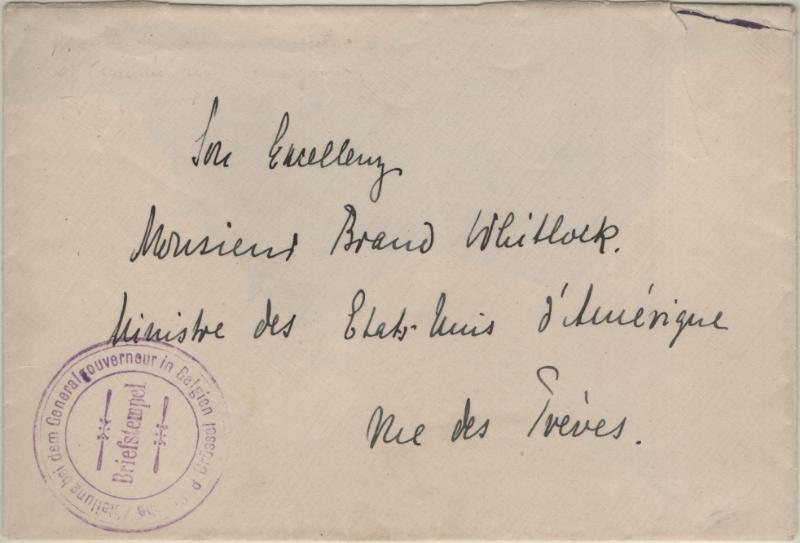 Son Excellenz
Monsieur Brand Whitlock.
Ministre des Etats-Unis d'Amérique
Rue des Trèves.
bei dem Generalgouverneur in Belgien
Briefstempel